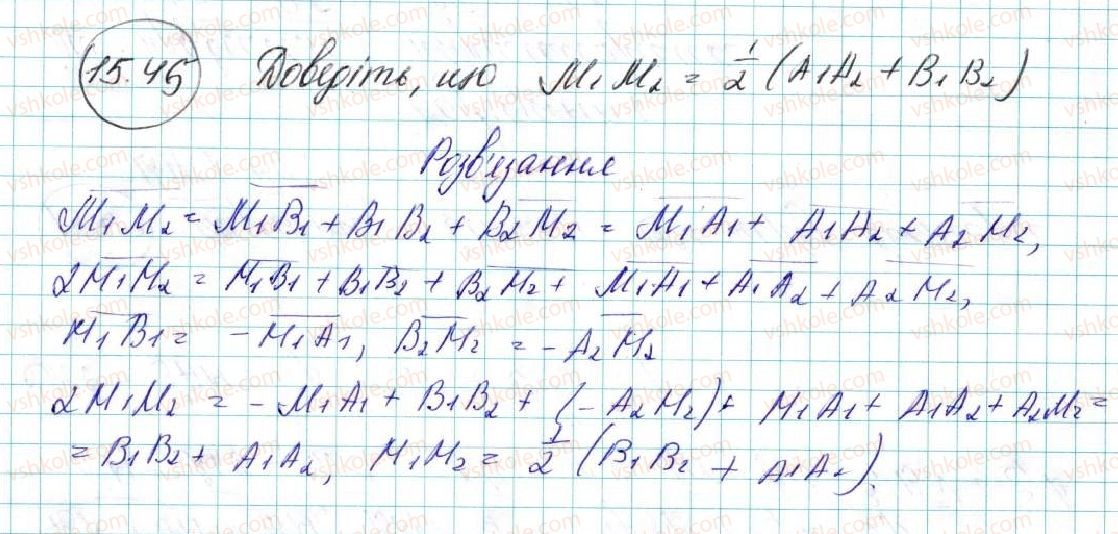 15.45 Доведіть, що M₁M₂ = 1/2 (A₁A₂ + B₁B₂)
Розв'язання
M₁M₂ = M₁B₁ + B₁B₂ + B₂M₂ = M₁A₁ + A₁A₂ + A₂M₂,
2M₁M₂ = M₁B₁ + B₁B₂ + B₂M₂ + M₁A₁ + A₁A₂ + A₂M₂,
M₁B₁ = - M₁A₁, B₂M₂ = - A₂M₂
2M₁M₂ = - M₁A₁ + B₁B₂ + (- A₂M₂) + M₁A₁ + A₁A₂ + A₂M₂ =
= B₁B₂ + A₁A₂, M₁M₂ = 1/2 (B₁B₂ + A₁A₂).